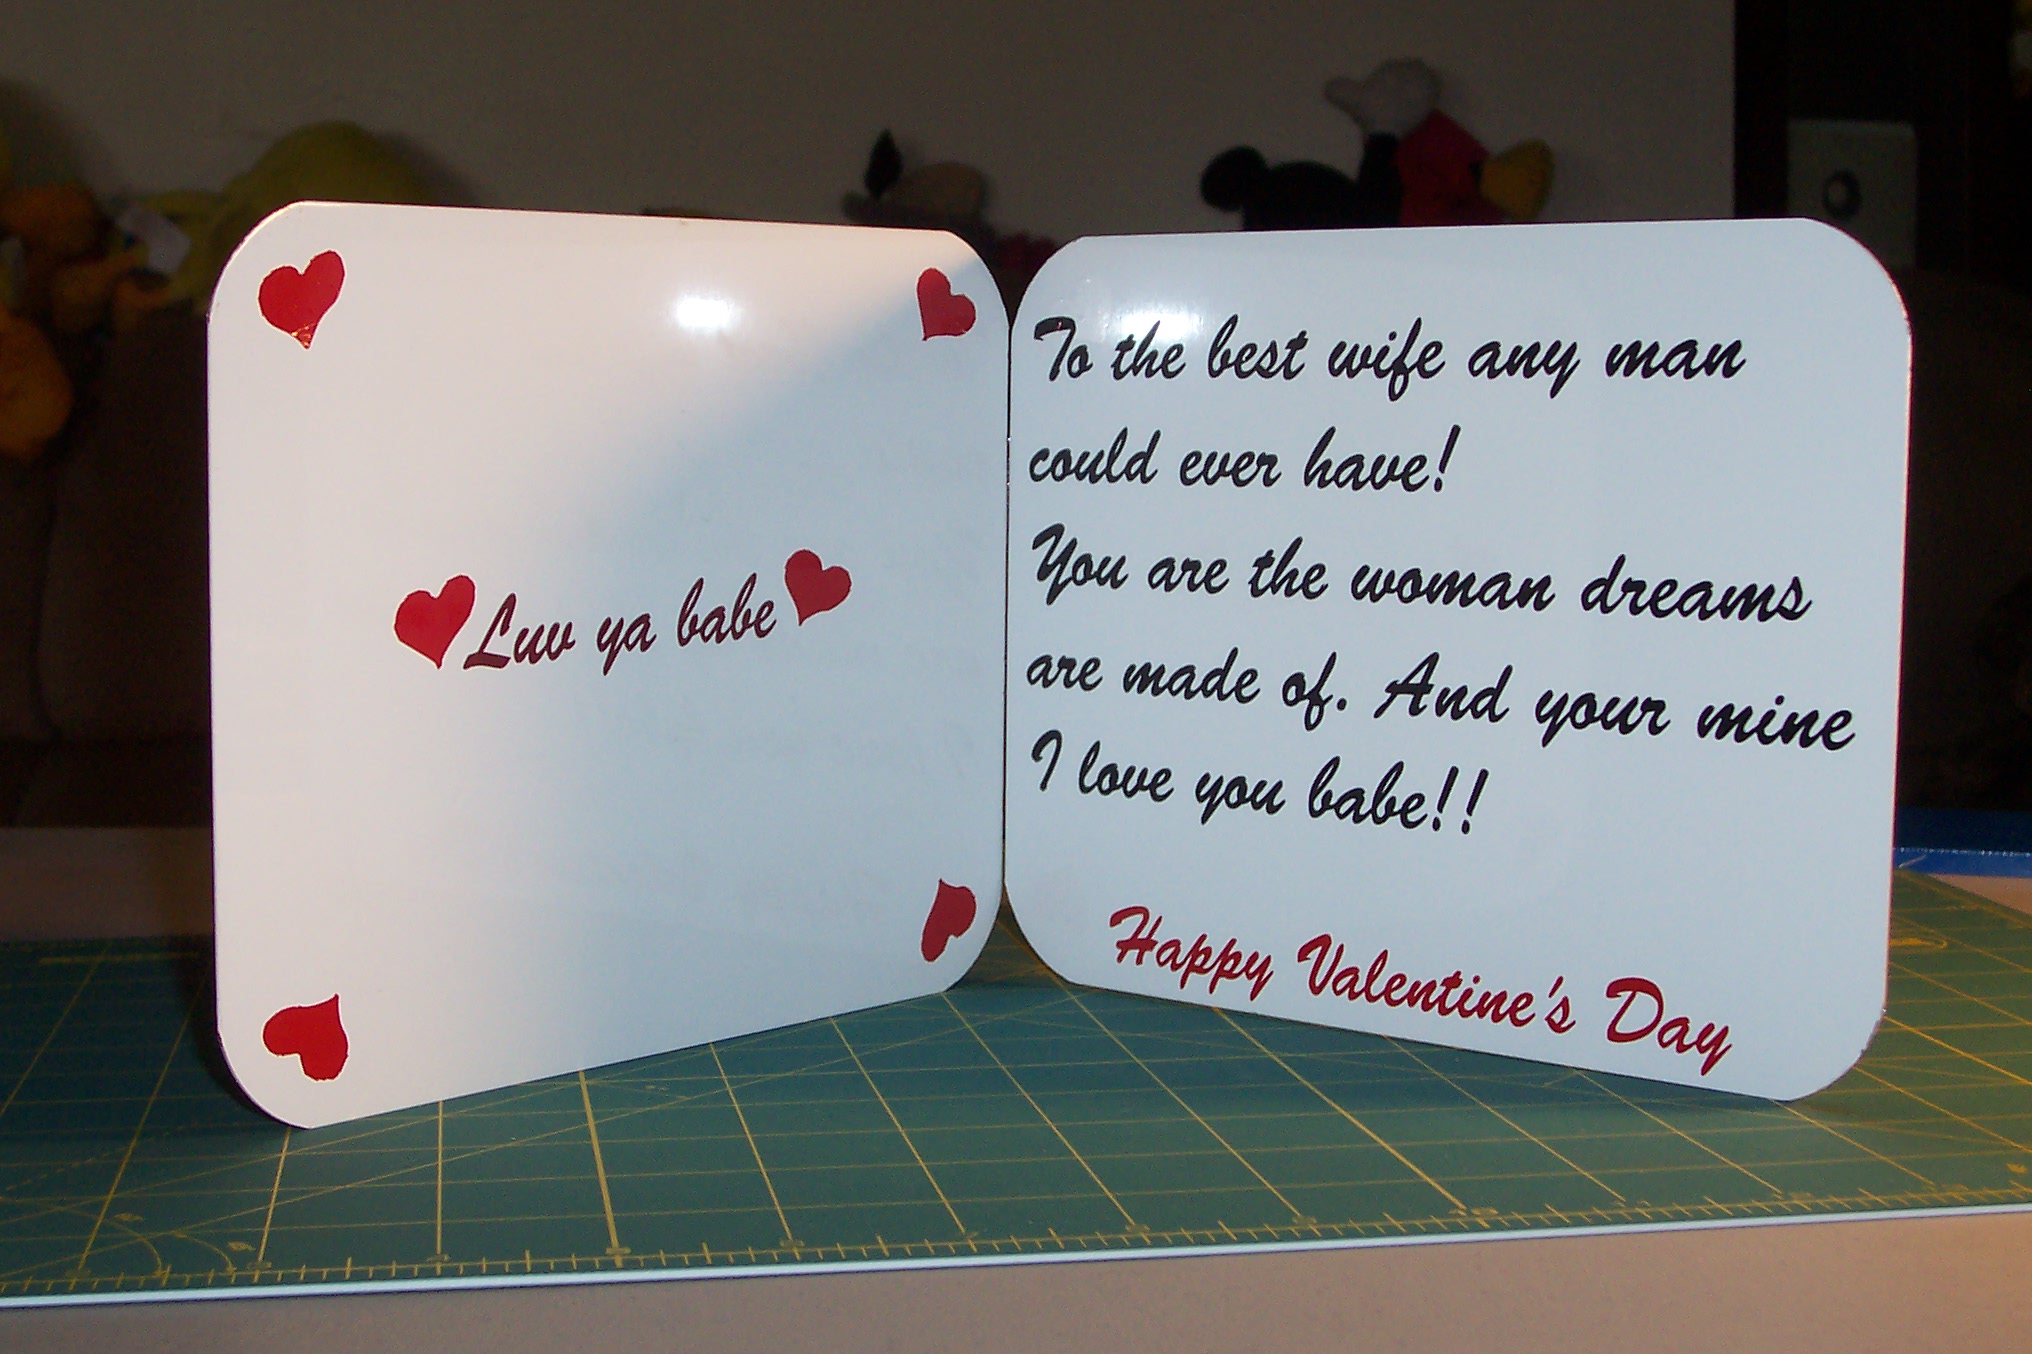 Luv ya babe
To the best wife any man
could ever have!
You are the woman dreams
are made of. And your mine
I love you babe!!
Happy Valentine's Day